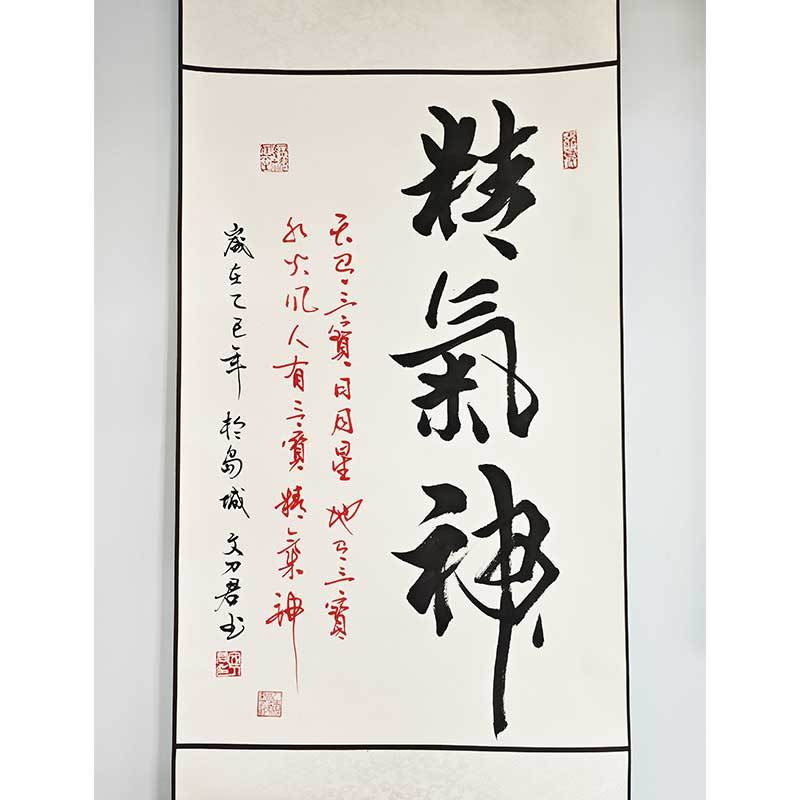 精氣神
天有三寶日月星地有三寶
水火风人有三寶精氣神
歲在乙巳年於島城文刀君书